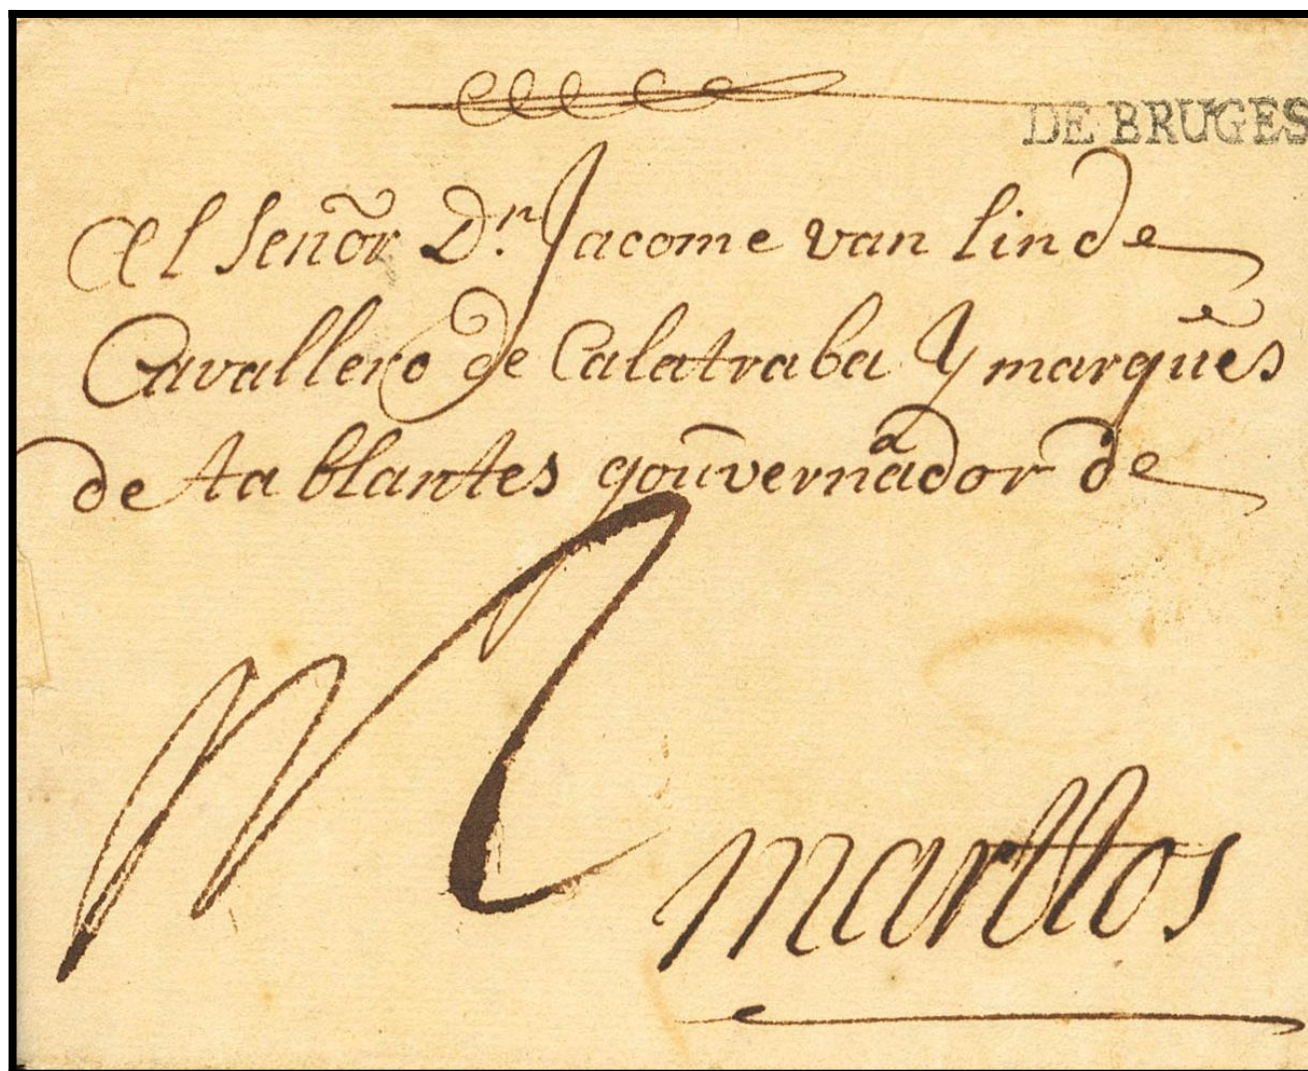 DE BRUGES
Al señor Dn. Jacome van linde
Cavallero de Calatraba Y marques
de tablantes gouvernador de
marttos